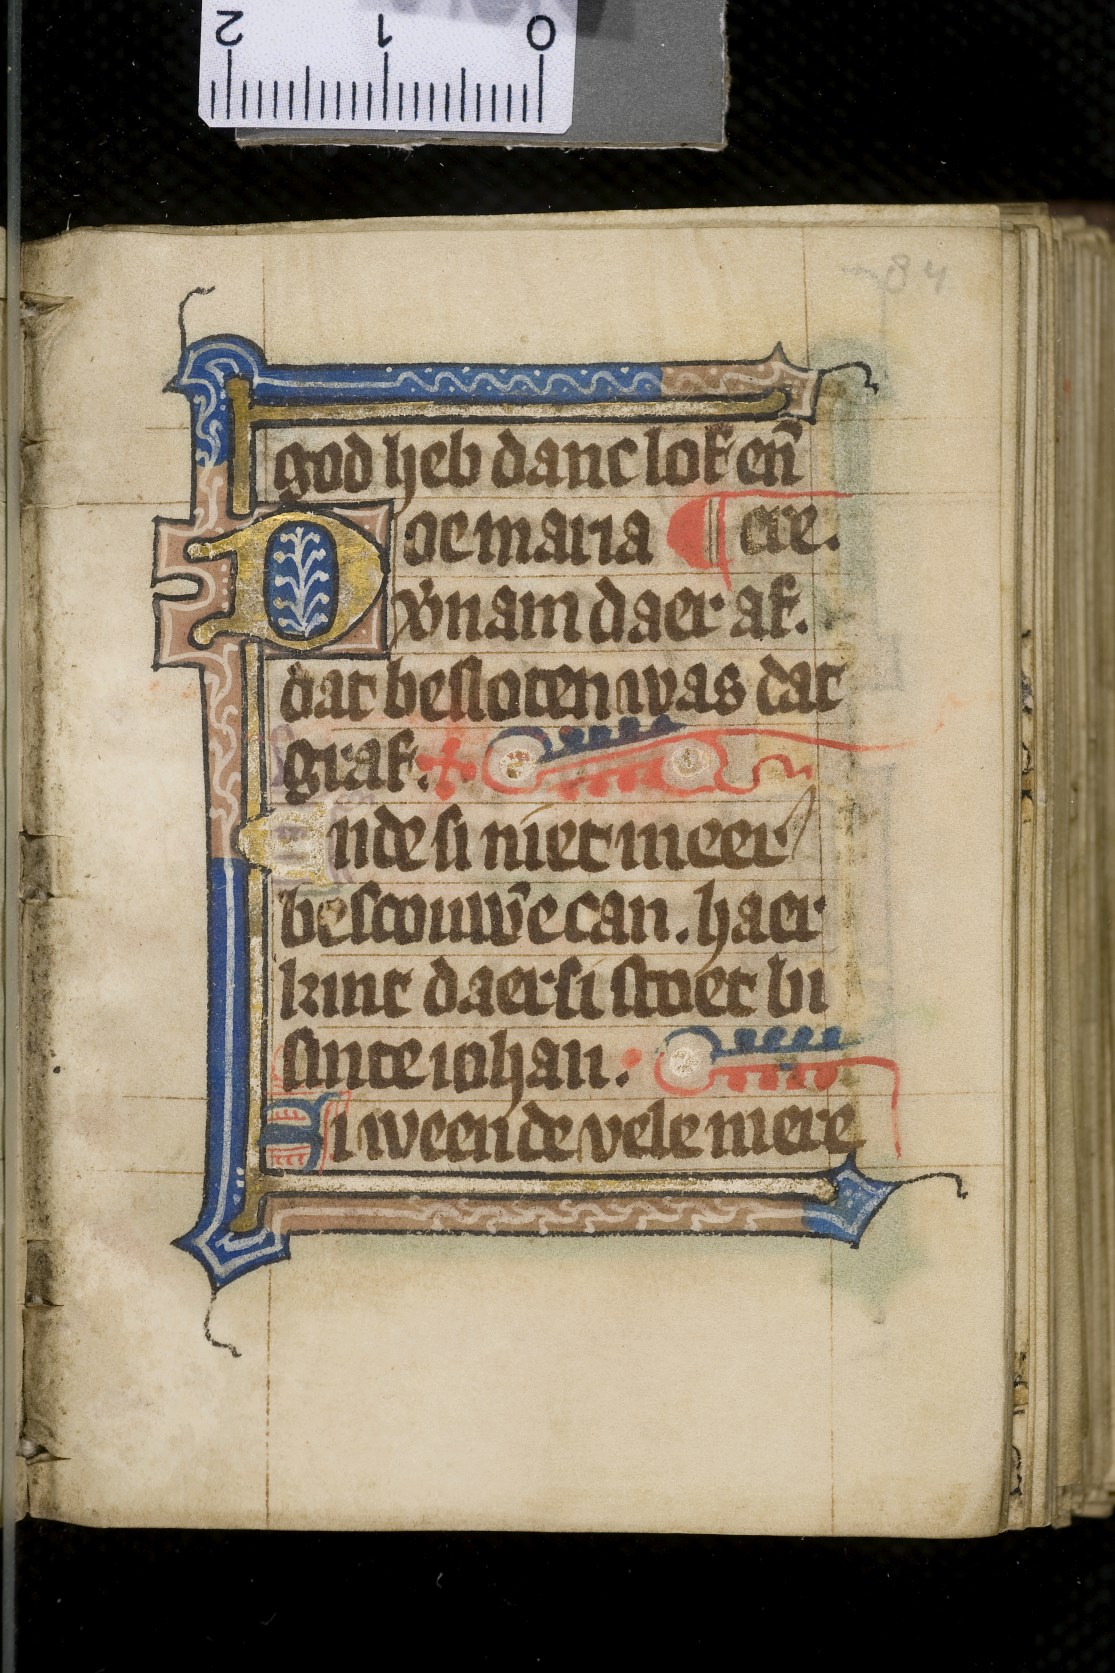 0 1 2
84
god heb danc lof en̄
Doe maria ¶ ere.
v̾nam daer af.
dat besloten was dat
graf.
Ende si niet meer
bescouwē can. haer
kint daer si stoet bi
sinte iohan.
Si weende vele mere